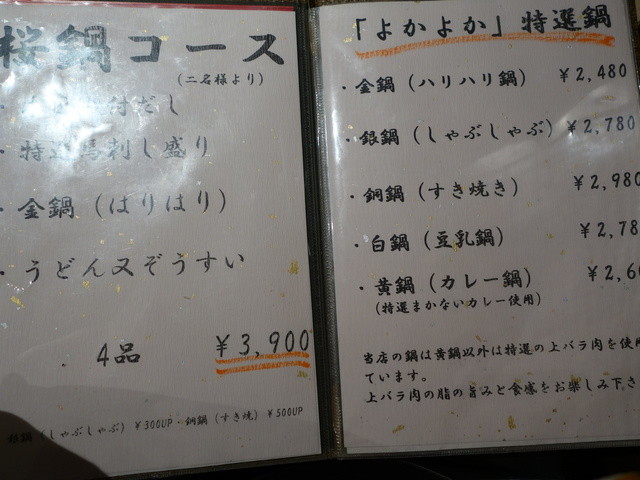 桜鍋コース
(二名様より)
付だし
・特選馬刺し盛り
・金鍋（はりはり）
・うどん又ぞうすい
・4品 ¥3,900
銀鍋（しゃぶしゃぶ）¥300UP・銅鍋（すき焼）¥500UP
「よかよか」特選鍋
・金鍋（ハリハリ鍋） ¥2,480
・銀鍋（しゃぶしゃぶ） ¥2,780
・銅鍋（すき焼き） ¥2,980
・白鍋（豆乳鍋） ¥2,78
・黄鍋（カレー鍋） ¥2,6
(特選まかないカレー使用)
当店の鍋は黄鍋以外は特選の上バラ肉を使用
ています。
上バラ肉の脂の旨みと食感をお楽しみ下さ